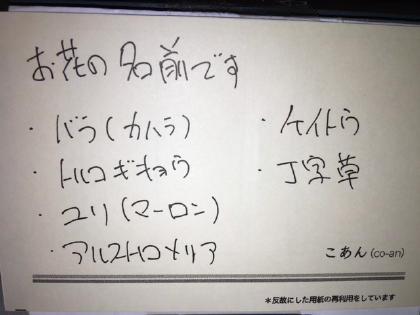 お花の名前です
・バラ(カハラ)
・トルコギキョウ
・ユリ(マーロン)
・アルストロメリア
・ケイトウ
・丁字草
こあん(co-an)
*反故にした用紙の再利用をしています